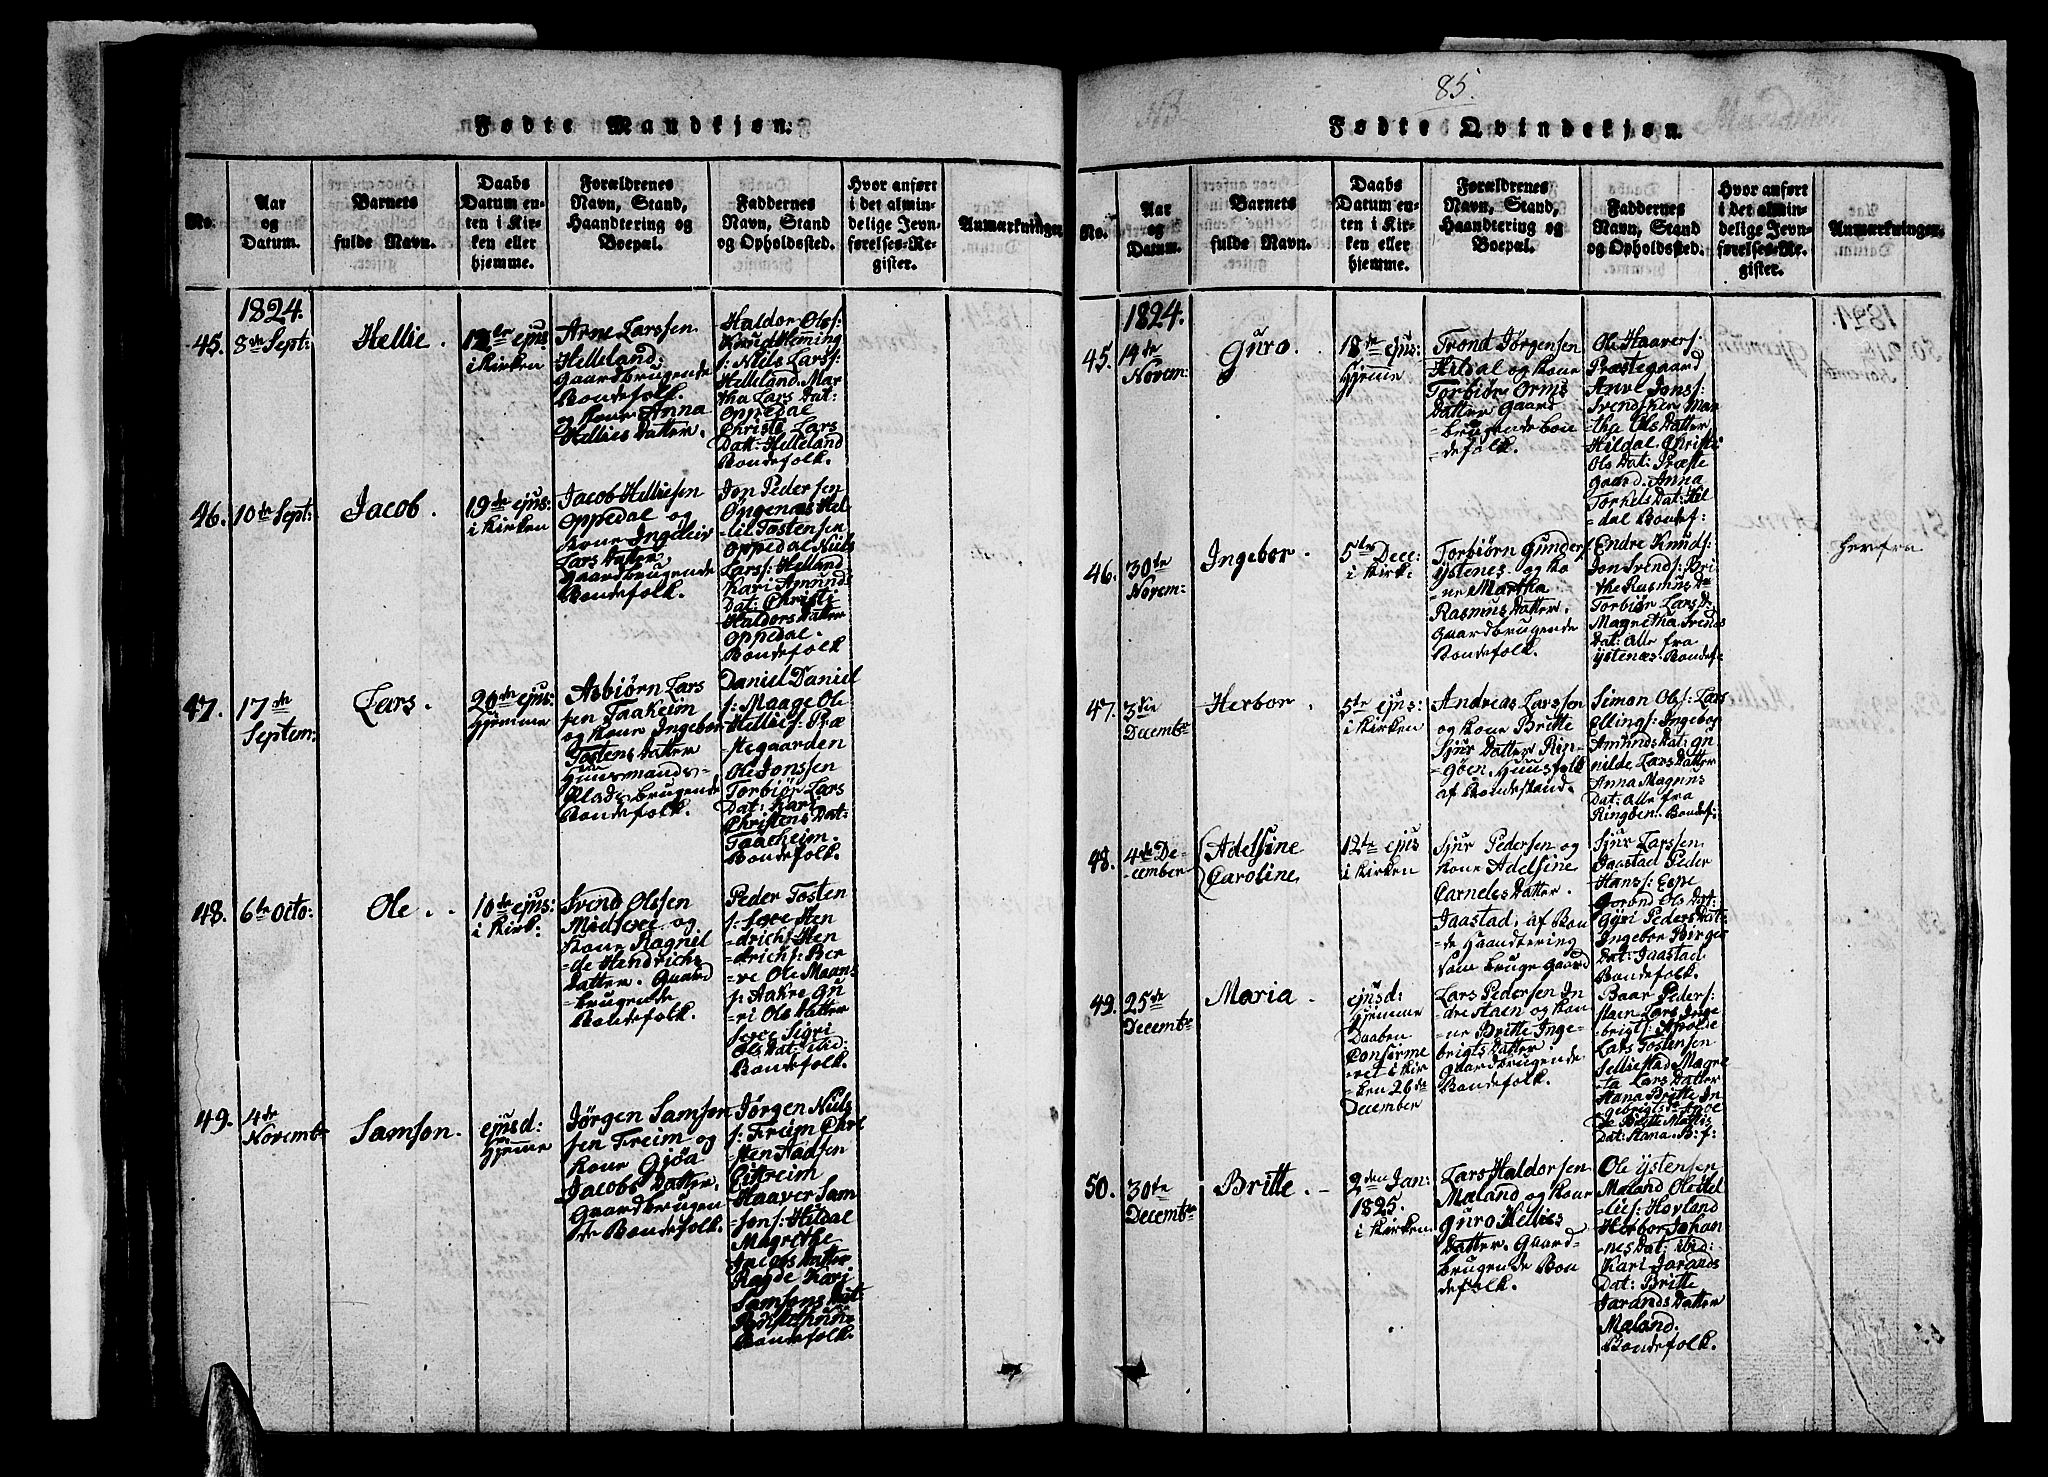 Fødte Mandkjøn.
No.
Aar
og
Datum.
Barnets
fulde Navn.
Daabs
Datum en-
ten i Kir-
ken eller
hjemme.
Forældrenes
Navn, Stand,
Haandtering og
Boepæl.
Faddernes
Navn, Stand
og Opholdssted.
Hvor anført
i det almin-
delige Jevn-
førelses-Re-
gister.
Anmærkninger.
1824.
45.
8de Sept:
Hellie.
12te ejus
i Kirken
Arne Larssen
Helleland:
Gaardbrugende
Bondefolk.
og Kone Anna
Hellies Datter.
Haldor Ols:
Knud Heming
s: Niels Lars:
Helleland. Mar
tha Lars Dat:
Oppedal
Christi Lars
Dat: Helleland
Bondefolk.
46.
10de Sept:
Jacob.
19de ejus:
i Kirken
Jacob Helliesen
Oppedal og
Kone Ingeleiv
Lars Datter
Gaardbrugende
Bondefolk.
Jon Peder sen
Opgenæs Hel
lie Tostensen
Oppedal Niels
Lars: Helland
Kari Amund
Dat: Christi
Haldors Datter
Oppedal.
Bondefolk
47.
17de
Septem:
Lars.
20de ejus:
Hjemme
Asbiørn Lars
sen Taakeim
og Kone Ingebor
Tostens Datter
Huusmands-
Plads brugende
Bondefolk.
Daniel Daniel
s: Maage Ole
Hellies: Præ
stegaarden
Ole Jonssen
Torbiør Lars
Dat: Kari
Christens Dat:
Taakheim.
Bondefolk.
48.
6te Octo:
Ole.
10de ejus:
i Kirk:
Svend Olssen
Midsexe og
Kone Ragnil
=de Hendrichs
Datter. Gaard
=brugende
Bondefolk.
Peder Tosten
s: sexe Hen
=drich Hen
drichs: Ber
=ve Ole Maans
s: Aakre Gu
=ri Ols Datter
sexe Sigri
Ols Dat: ibid:
Bondefolk.
49.
4de
Novembr
Samson.
ejusd:
Hjemme
Jørgen Samson
sen Freim og
Kone Gjøa
Jacobs Datter.
Gaardbrugen
de Bondefolk.
Jørgen Niels
s: Freim Chri
=sten Aadsen
Eitreim
Haaver Sam
=sons: Hildal
Magrethe
Jacobs Datter
Ragde Kari
Samsons Dat:
Bondefolk.
85.
Fødte Qvindekjøn.
No.
Aar
og
Datum.
Barnets
fulde Navn.
Daabs
Datum en-
ten i Kir-
ken eller
hjemme.
Forældrenes
Navn, Stand,
Haandtering og
Boepæl.
Faddernes
Navn, Stand
og Opholdssted.
Hvor anført
i det almin-
delige Jevn-
førelses-Re-
gister.
Anmærkninger.
1824.
45.
14de
Novem:
Guro.
18de ejus:
Hjemme
Trond Jørgensen
Hildal og Kone
Torbiør Orms
Datter Gaard
=brugende Bon
=defolk.
Ole Haavers:
Præstegaard
Arve Jons:
Svendsken Mar
tha Ols Datter
Hildal. Christi
Ols Dat: Præste
gaard. Anna
Torkels Dat: Hil
=dal Bondef:
46.
30te
Novem:
Ingebor.
5te Dece:
i Kirk:
Torbiørn Gunders
Ystenes og Ko
ne Martha
Rasmus Datter.
Gaardbrugende
Bondefolk.
Endre Knuds:
Jon Svends: Bri
the Rasmus Da
Torbiør Lars D.
Magretha Svends
Dat: Alle fra
Ystenæs. Bondef:
herfra
47.
3die
Decembr
Herbor.
5te ejus:
i Kirken
Andreas Larssen
og Kone Britte
Sjur Datter Rin=
=gøen. Huusfolk
af Bondestand.
Simon Ols: Lars
Ellings: Ingebor
Amunds Dat: Gu
nilde Lars Datter
Anna Magnus
Dat: Alle fra
Ringøen. Bondef:
48.
4de De=
=cember
Adelsine
Caroline
12te ejus
i Kirken
Sjur Pedersen og
Kone Adelsine
Carneles Datter.
Jaastad. af Bon
de Haandtering
som bruge Gaard
Sjur Larssen
Jaastad Peder
Hans: Espe
Gorond Ols Dat:
Gyri Peders Dat:
Ingebor Birges
Dat: Jaastad
Bondefolk.
49.
25de
Decembr
Maria.
ejusd:
Hjemme
Daaben
Confirme
=ret i Kir
=ken 26de
December
Lars Pedersen In
=dre Staen og Ko
=ne Britte Inge=
brigts Datter
Gaardbrugende
Bondefolk.
Baar Peders:
Staen Lars Inge
brigts: Apolde
Lars Tostensen
Selliestad Magre
=ta Lars Datter
Stana Britte In
gebrigts D: Apol
de Britte Mattis
Dat: Stana. B: f:
50.
30te
Decembr
Britte.
2den Jan:
1825.
i Kirken
Lars Haldorsen
Maland og Kone
Guro Hellies
Datter. Gaard=
brugende Bon
defolk.
Ole Ystensen
Maland Ole Hel
lies: Hovland
Herbor Johan
=nes Dat: ibid:
Kari Jarands
Dat: Britte
Jarands Datter
Maland.
Bondefolk.